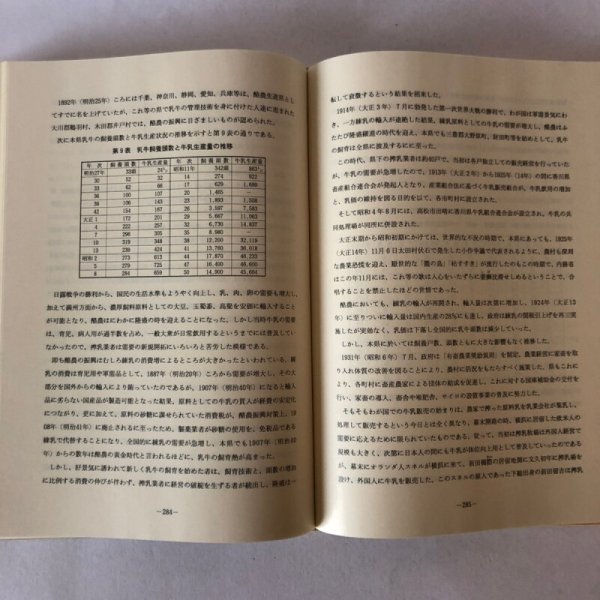 1892年(明治25年)ころには千葉、神奈川、静岡、愛知、兵庫等は、酪農生産県とし
てすでに名を上げていたが、これ等の県で乳牛の管理技術を身に付けた人達に恵まれた
大川郡鶴羽村、木田郡井戸村では、酪農の振興に目ざましいものが認められた。
次に本県乳牛の飼養頭数と牛乳生産状況の推移を示すと第9表の通りである。
第9表 乳牛飼養頭数と牛乳生産量の推移
年次 飼養頭数 牛乳生産量 年次 飼養頭数 牛乳生産量
明治27年 33頭 24 昭和11年 342頭 863
30 52 32 14 274 922
33 62 66 17 629 1,689
36 106 108 23 1,893 1,558
42 154 187 26 3,597 7,583
大正1 172 201 29 5,667 11,063
4 222 257 32 6,730 14,837
7 302 308 35 8,980 ―
10 319 348 38 12,200 32,118
13 238 424 41 13,760 36,018
昭和2 273 443 44 17,870 48,233
5 279 457 47 16,400 48,600
8 284 659 50 14,900 45,664
日露戦争の勝利から、国民の生活水準もようやく向上し、乳、肉、卵の需要も増大し、
加えて満州方面から、濃厚飼料原料としての大豆、玉蜀黍、高粱を安価に輸入すること
が可能となり、酪農はにわかに隆盛の時を迎えることになった。しかし当時牛乳の需要
は、育児、病人用が過半数を占め、一般大衆が日常飲用するというまでには普及してい
なかったので、搾乳業者は需要の新規開拓にいろいろと苦労した模様である。
即ち酪農の振興はむしろ練乳の消費増によるところが大きかったといわれている。練
乳の消費は育児用や軍需品として、1887年(明治20年)ころから需要が増大し、その大
部分を国外からの輸入により賄っていたのであるが、1907年(明治40年)になると輸入
品に劣らない国産品が製造可能となった結果、原料としての牛乳の買入が経費の安定化
につながり、更に加えて、原料の砂糖に課せられていた消費税が、酪農振興対策上、19
08年(明治41年)に廃止されるに至ったため、製菓業者が砂糖の使用を、免税品である
練乳で代替することになり、全国的に練乳の需要が急増し、本県でも1907年(明治40
年)からの数年は酪農の黄金時代と言われるほどに、乳牛の飼育熱が高まった。
しかし、好景気に誘われて新しく乳牛の飼育を始めた者は、飼育技術と、頭数の増加
に比例する消費の伸びが伴わず、搾乳業者に経営の破綻を生ずる者が続出し、隆盛は一
―284―
転して衰微するという結果を招来した。
1914年(大正3年)7月に勃発した第一次世界大戦の勝利で、わが国は軍需景気にわ
き、一方練乳の輸入が途絶した結果、練乳原料としての牛乳の需要が増大し、酪農はふ
たたび隆盛経済の時代を迎え、本県でも三豊郡大野原村、財田町等で製造を始め、乳牛
の飼育は全県に波及するに至った。
この時代、県下の搾乳業者は約60戸で、当初は各戸独立しての販売経営を行っていた
が、牛乳の需要が急増したので、1913年(大正2年)から1925年(大正14年)に香川県
畜産組合連合会が発起人となり、産業組合法に基づく牛乳販売組合が、牛乳飲用の増加
と、乳価の維持を図る目的を以て、各市町村に設立された。
そして昭和4年8月には、高松市田崎に香川県牛乳組合連合会が設立され、牛乳の共
同処理場が同所に併設された。
大正末期から昭和初期にかけては、世界的な不況の時期で、本県にあっても、1925年
(大正14年)11月6日太田村伏石で発生した小作争議で代表されるように、農村も深刻
な農業恐慌を迎え、
はこの年11月には、これ等の歌は人心をいたずらに
唱することを禁止したほどの苦境であった。
酪農においても、練乳の輸入が再開され、輸入量は次第に増加し、1924年(大正13
年)に至りついに輸入量は国内生産の28%にも達し、政府は練乳の関税引上げを再三実
施したが効なく、乳価は下落し全国的に乳牛頭数は減少していった。
しかし本県においては、戸数、頭数ともに大きな影響もなく推移した。
1931年(昭和6年)7月、政府は「有畜農業奨励規則」を制定、農業経営に家畜を取
り入れ体質の改善を図ることにより、農村に活況をもたらすべく施策した。県もこれに
より、各町村に畜産農家による団体の結成を促進し、これに対する国庫補助金の交付を
行い、家畜の導入、畜舎や堆肥舎、サイロの設置事業の普及に努力した。
そもそもわが国での牛乳販売の始まりは、農家で搾った原料乳を乳業会社が集乳し、
処理して販売するという今日とは全く異なり、幕末開港の時、横浜に居留した欧米人の
需要に応えるために限られていたものである。従って、当初は搾乳牧場は外国人経営で
規模も大きく、次第に日本人の間にも牛乳が体位向上用として普及していったのである
が、幕末にオランダ人スネルが横浜に来て、前田橋際の居留地園に文久初年に搾乳場を
設け、外国人に牛乳を販売した。このスネルの雇人であった下総出身の前田留吉は搾乳
―285―